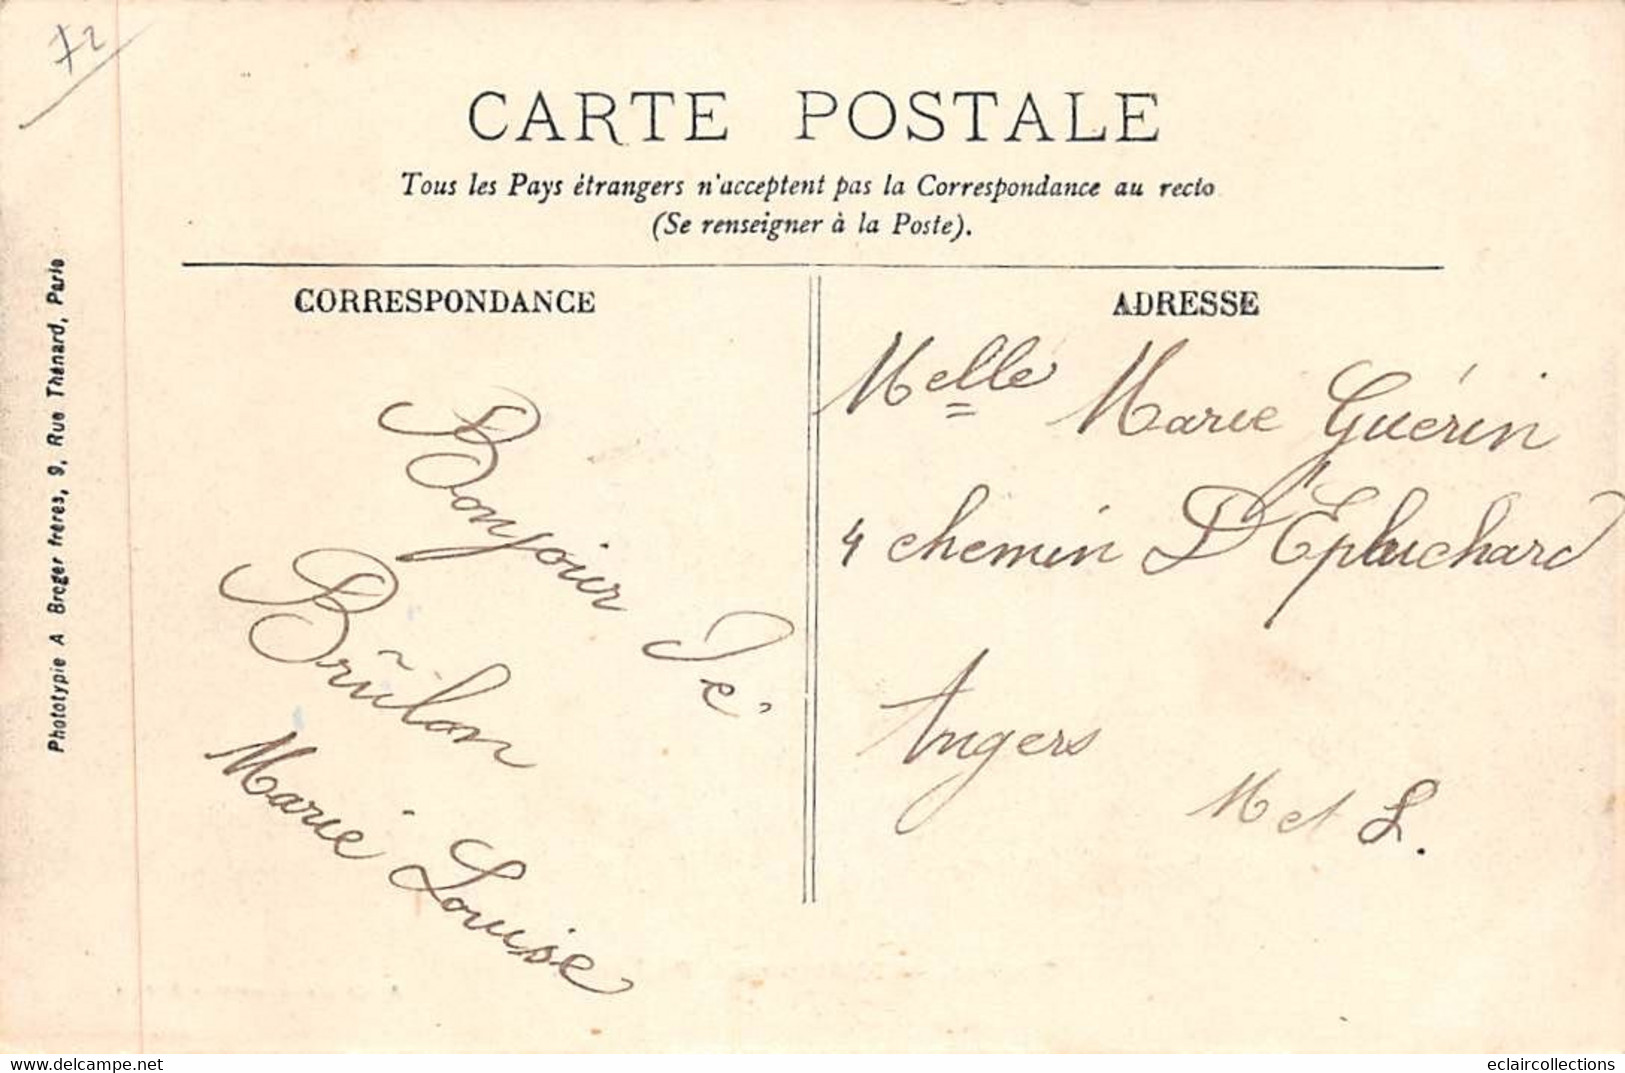 72
CARTE POSTALE
Tous les Pays étrangers n'acceptent pas la Correspondance au recto
(Se renseigner à la Poste).
CORRESPONDANCE
Bonjour De
Brûlon
Marie Louise
ADRESSE
Melle Marie Guérin
4 chemin D'Epluchard
Angers
M et L.
Phototypie A Breger frères, 9, Rue Thénard, Paris
eclaircollections